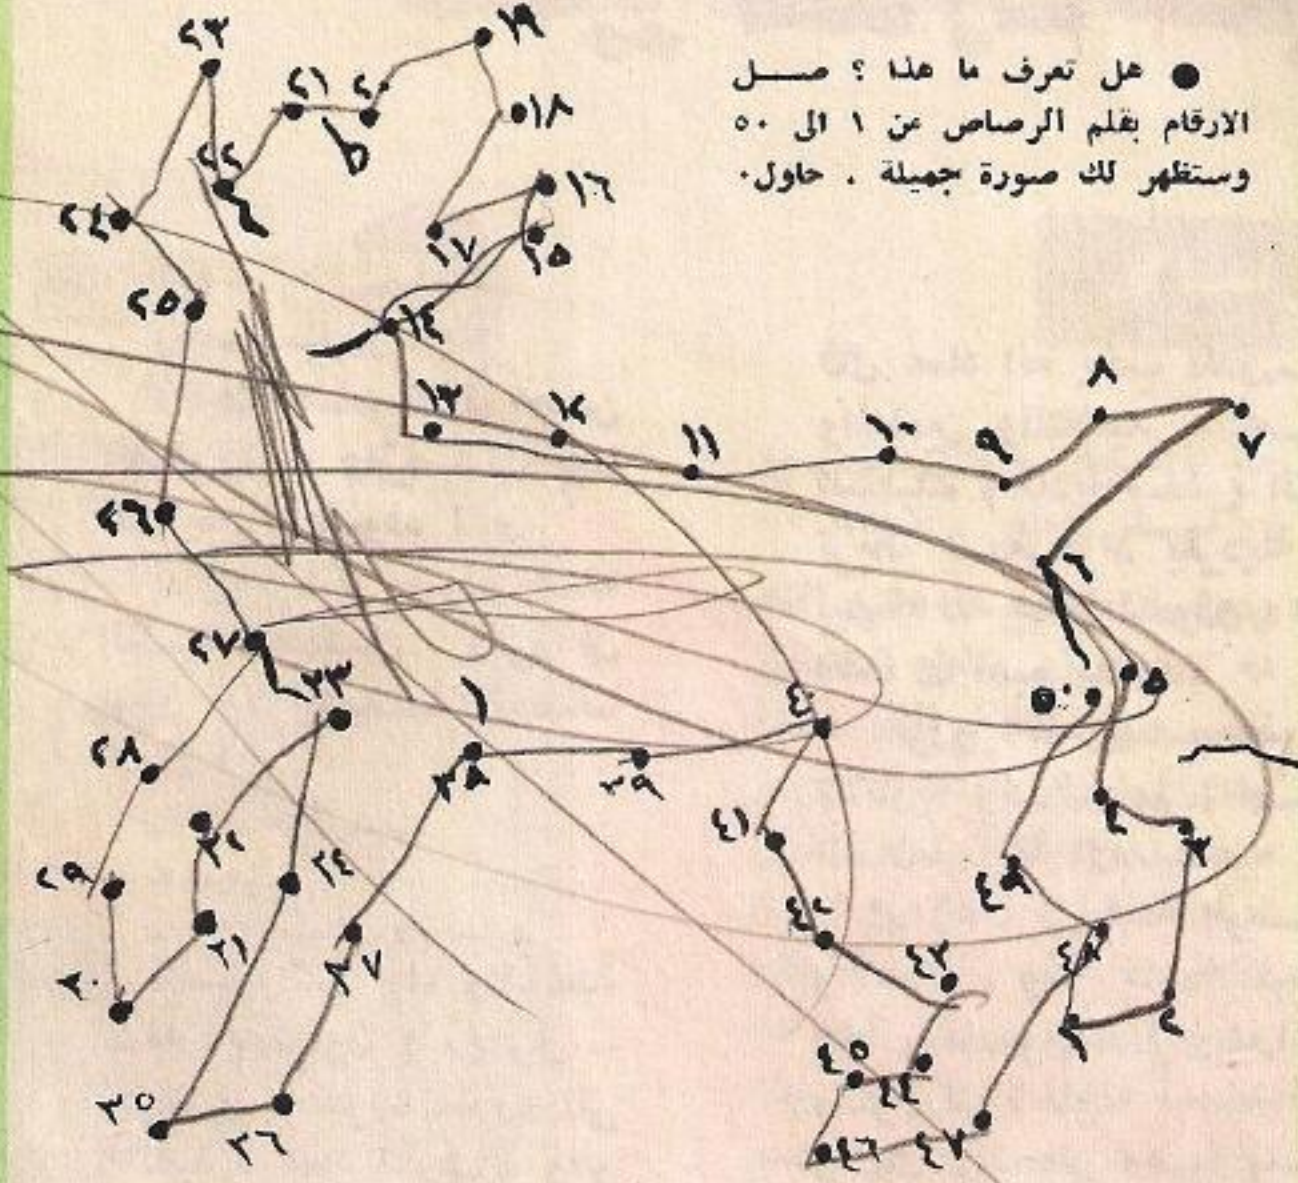 ● هل تعرف ما هذا ؟ صــل
الارقام بقلم الرصاص من ١ الى ٥٠
وستظهر لك صورة جميلة . حاول.
٢٣
١٩
٢١
٢٠
١٨
٢٢
١٦
٢٤
١٧
١٥
٢٥
١٤
٨
١٣
١٢
٧
١١
١٠
٩
٢٦
٦
٢٧
٣٣
١
٥٠
٥
٤٠
٢٨
٣٨
٣٩
٤
٤١
٣
٣٢
٢٩
٣٤
٤٩
٤٢
٣١
٤٨
٣٧
٤٣
٣٠
١
٢
٤٥
٤٤
٣٥
٣٦
٤٦
٤٧